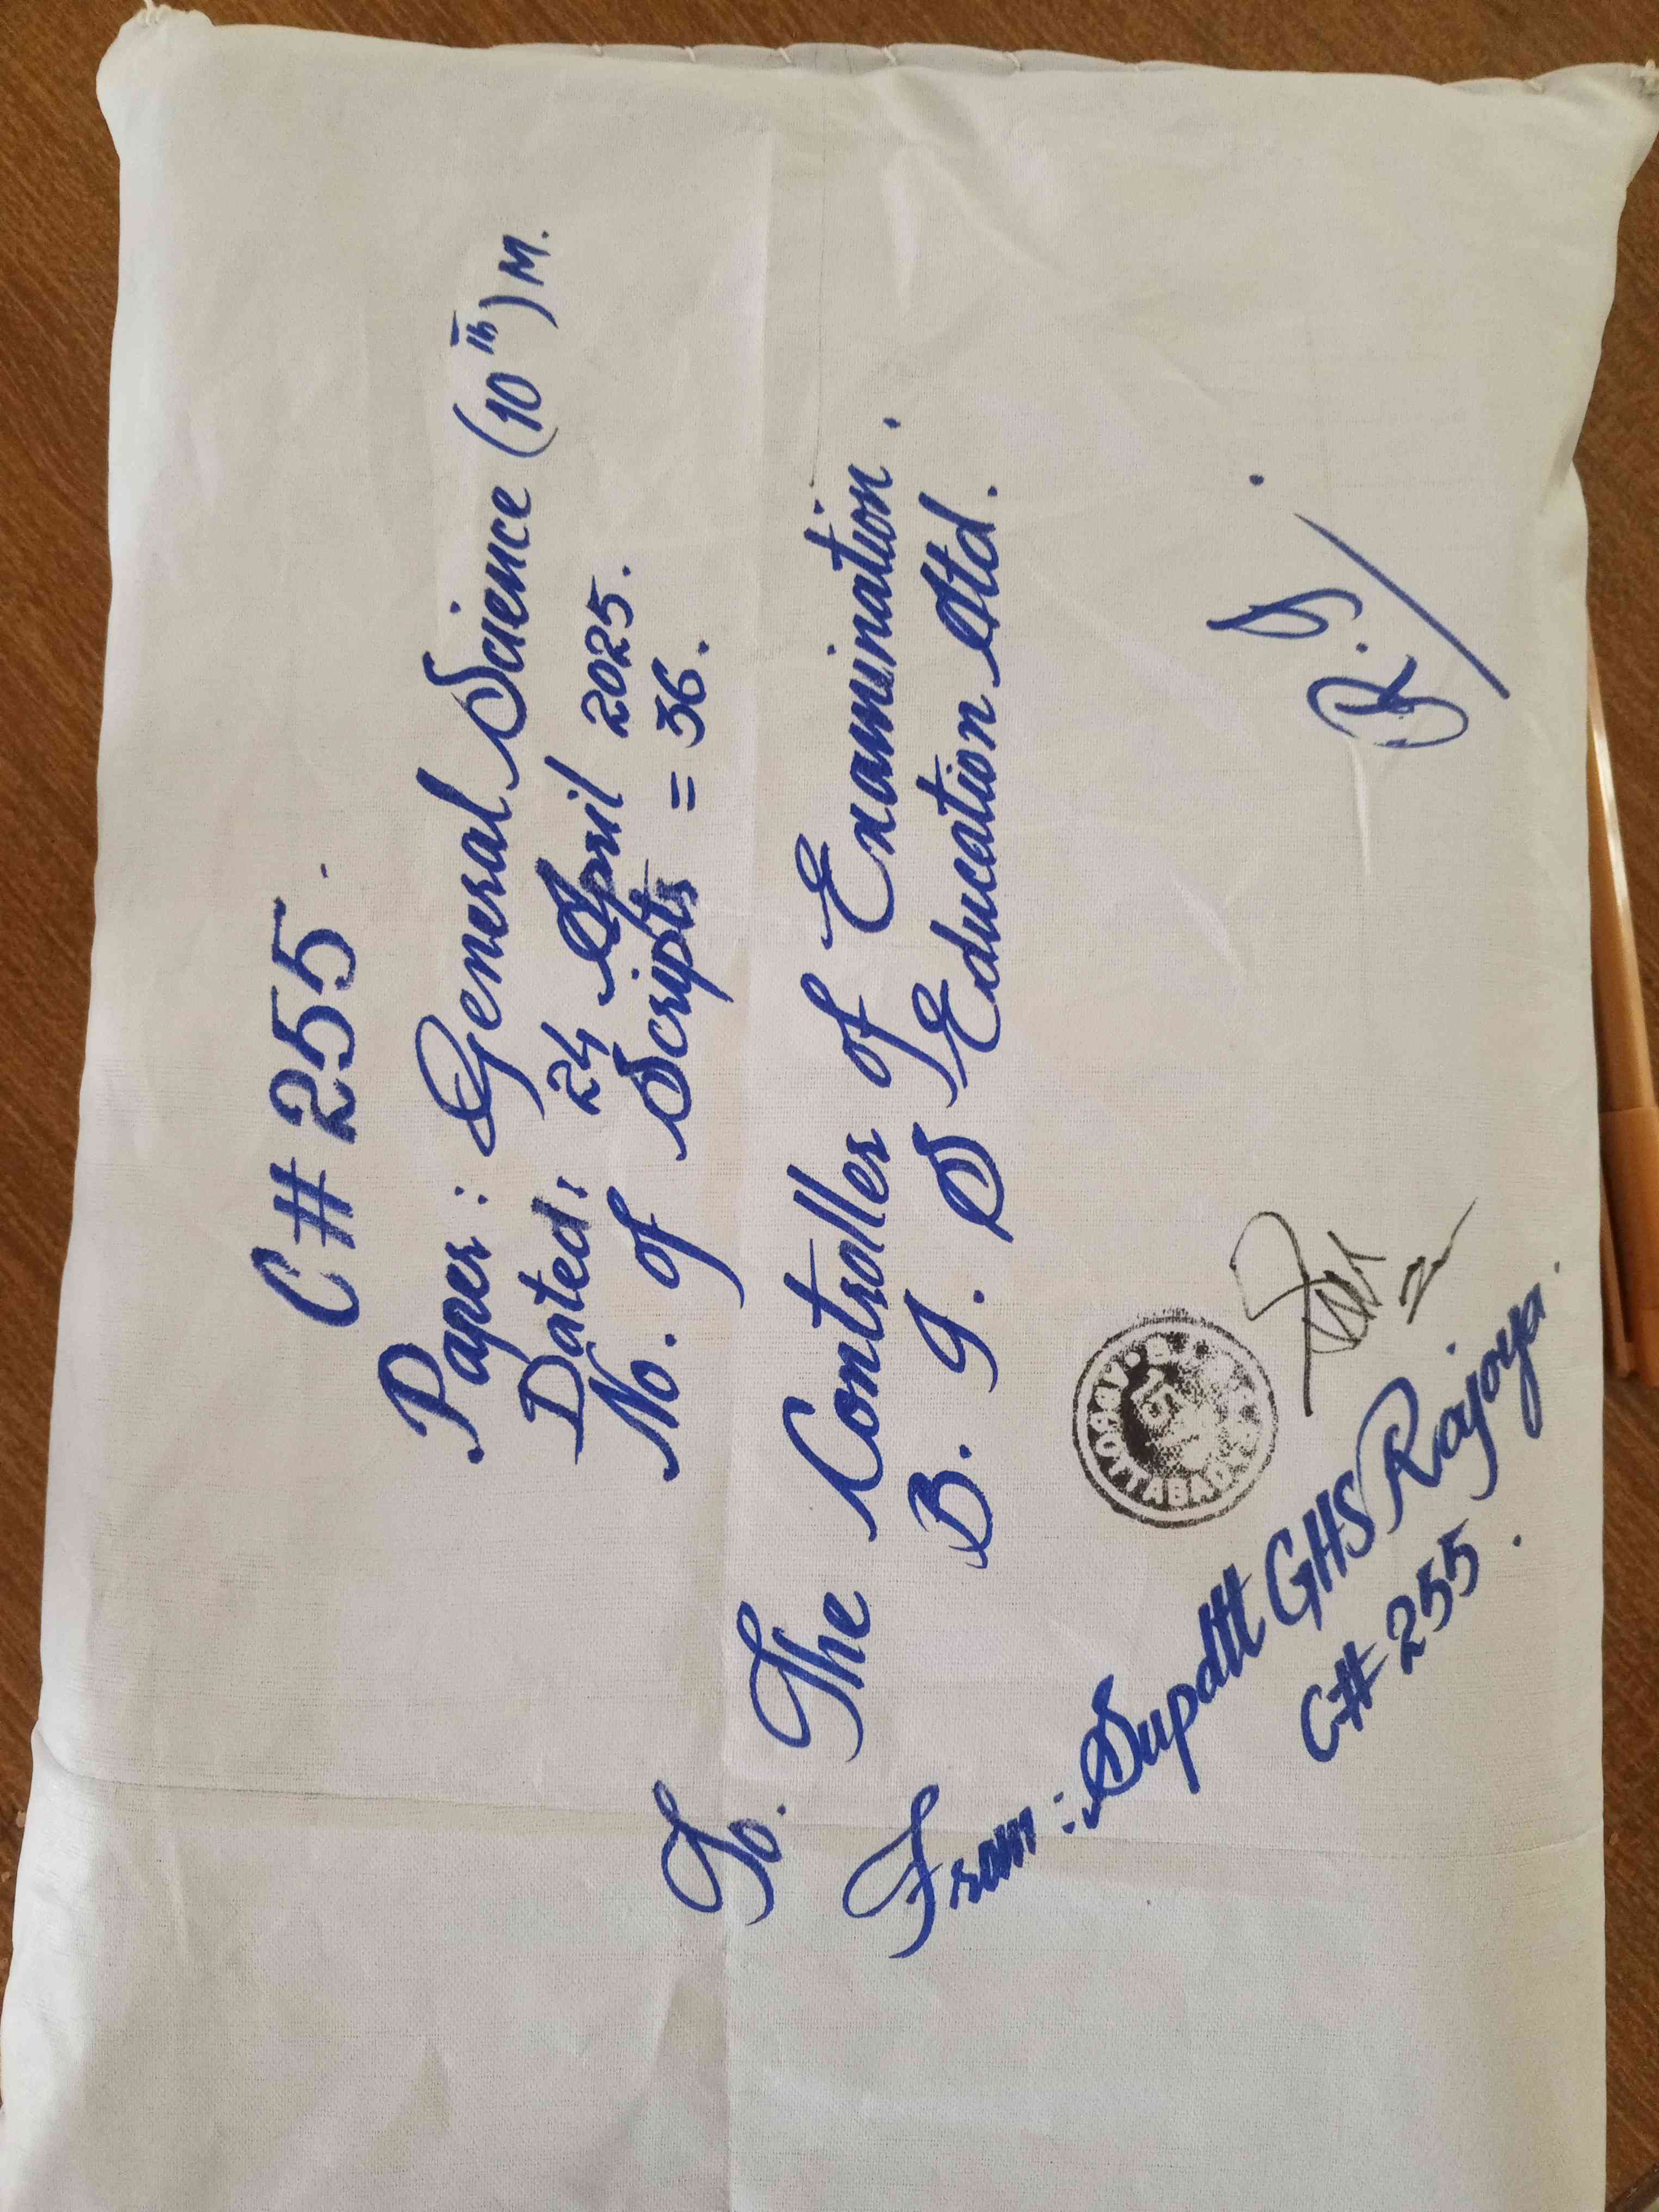 C # 255.
Paper: General Science (10th) M.
Dated: 24 April 2025.
No. of Scripts = 36.
To.
The Controller of Examination.
B. I. S Education Atd.
From: Supdtt GHS Rajoya.
C# 255.